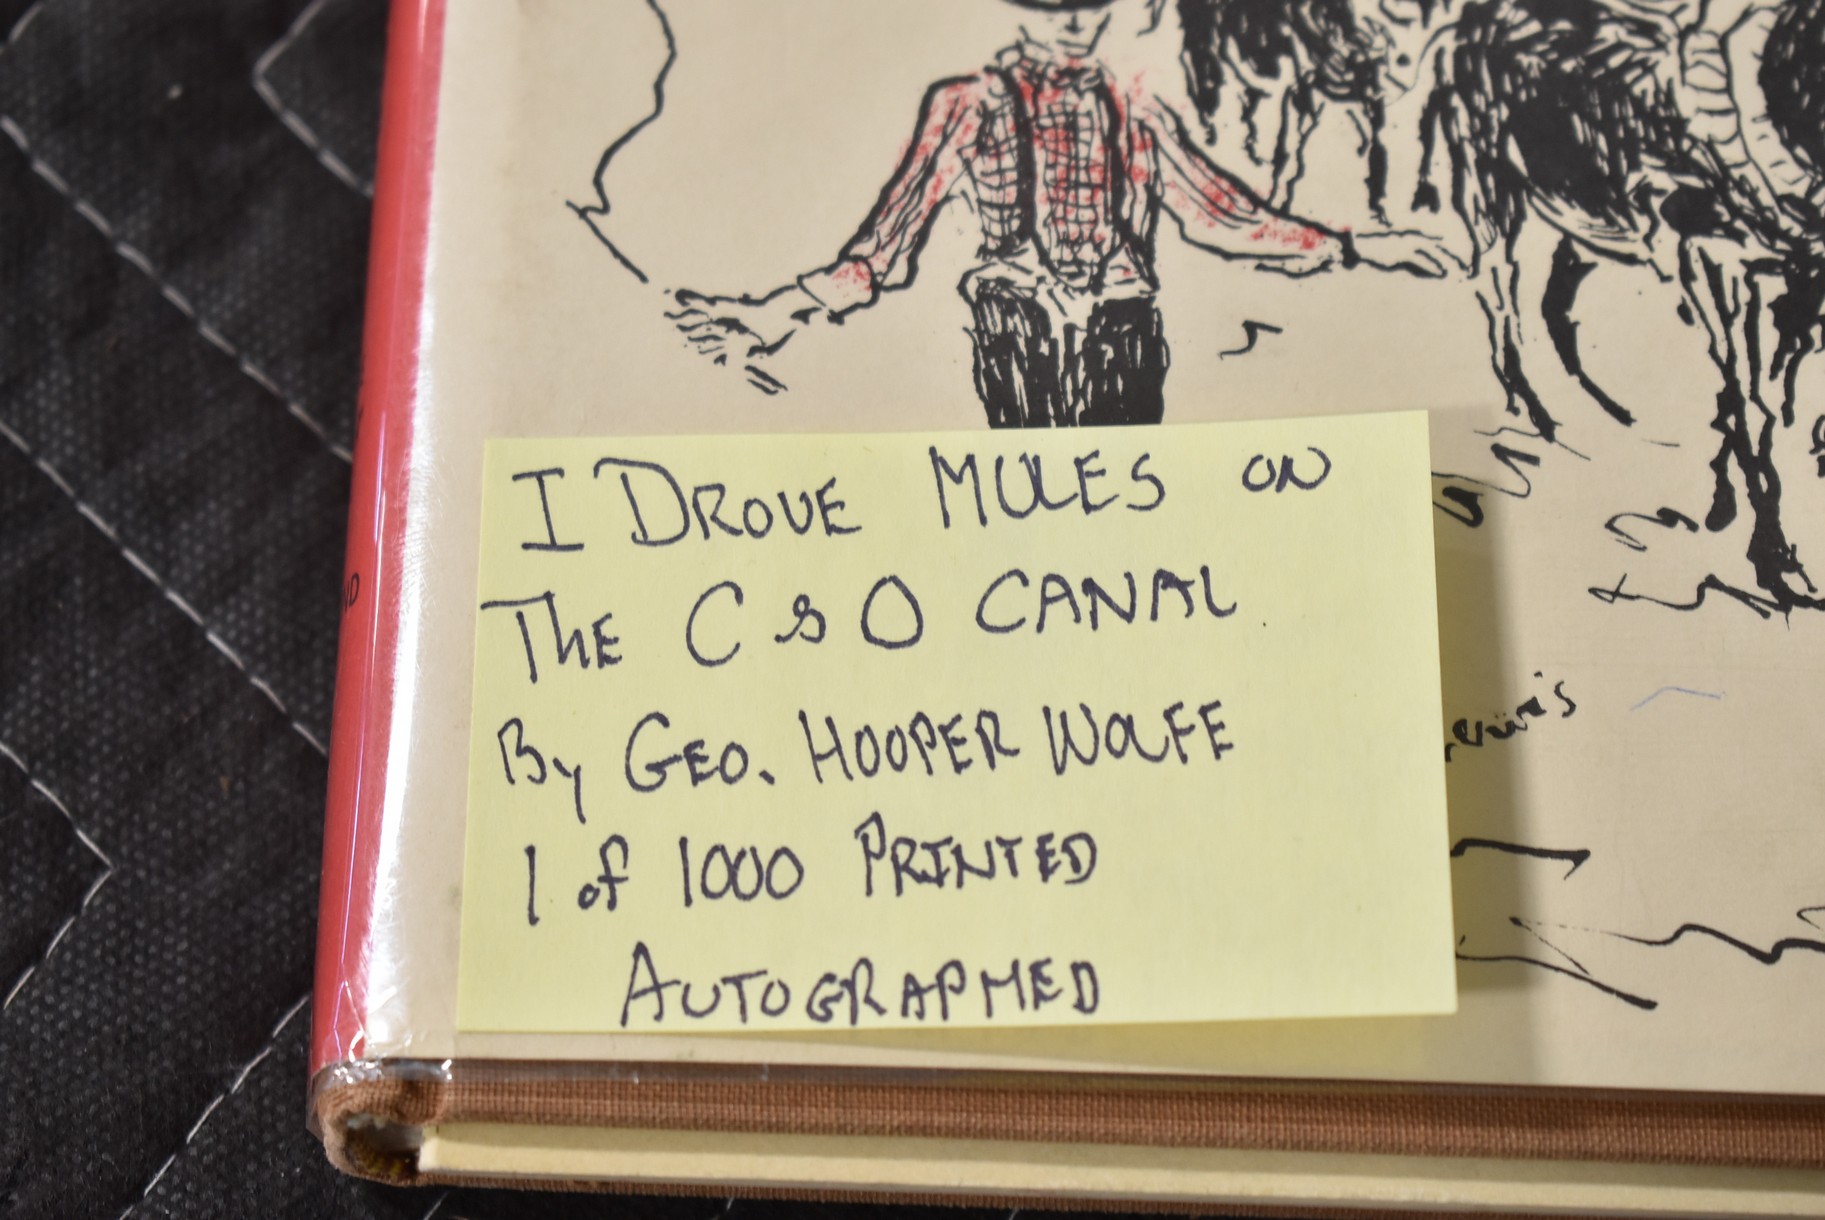 I DROVE MULES ON
THE C & O CANAL
By GEO. HOOPER WOLFE
1 of 1000 PRINTED
AUTOGRAPHED